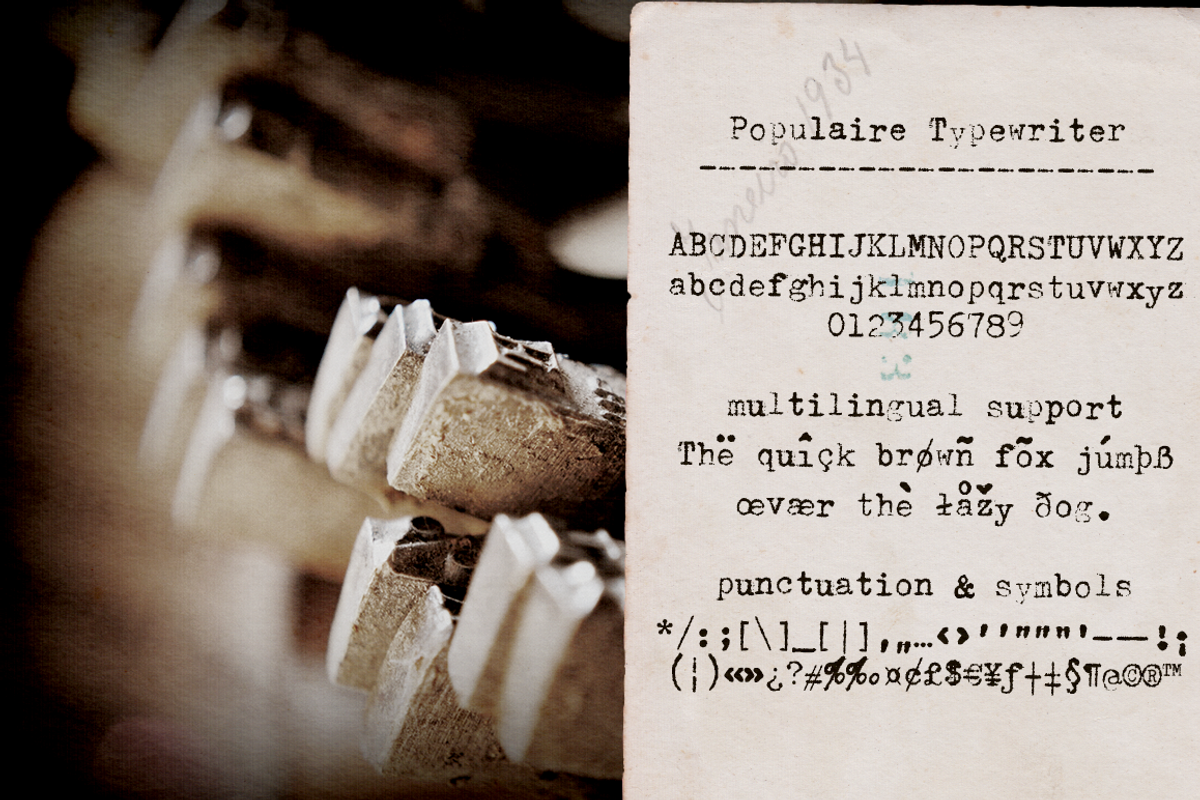 1934
Populaire Typewriter
-----------------------
ABCDEFGHIJKLMNOPQRSTUVWXYZ
abcdefghijklmnopqrstuvwxyz
0123456789
multilingual support
Thë quîçk brøwñ fõx júmþß
œvær thè łåžy ðog.
punctuation & symbols
*/:;[\]_[|],„…‹›''"""'——!¡
(¦)«»¿?#%‰¤¢£$€¥ƒ†‡§¶@©®™